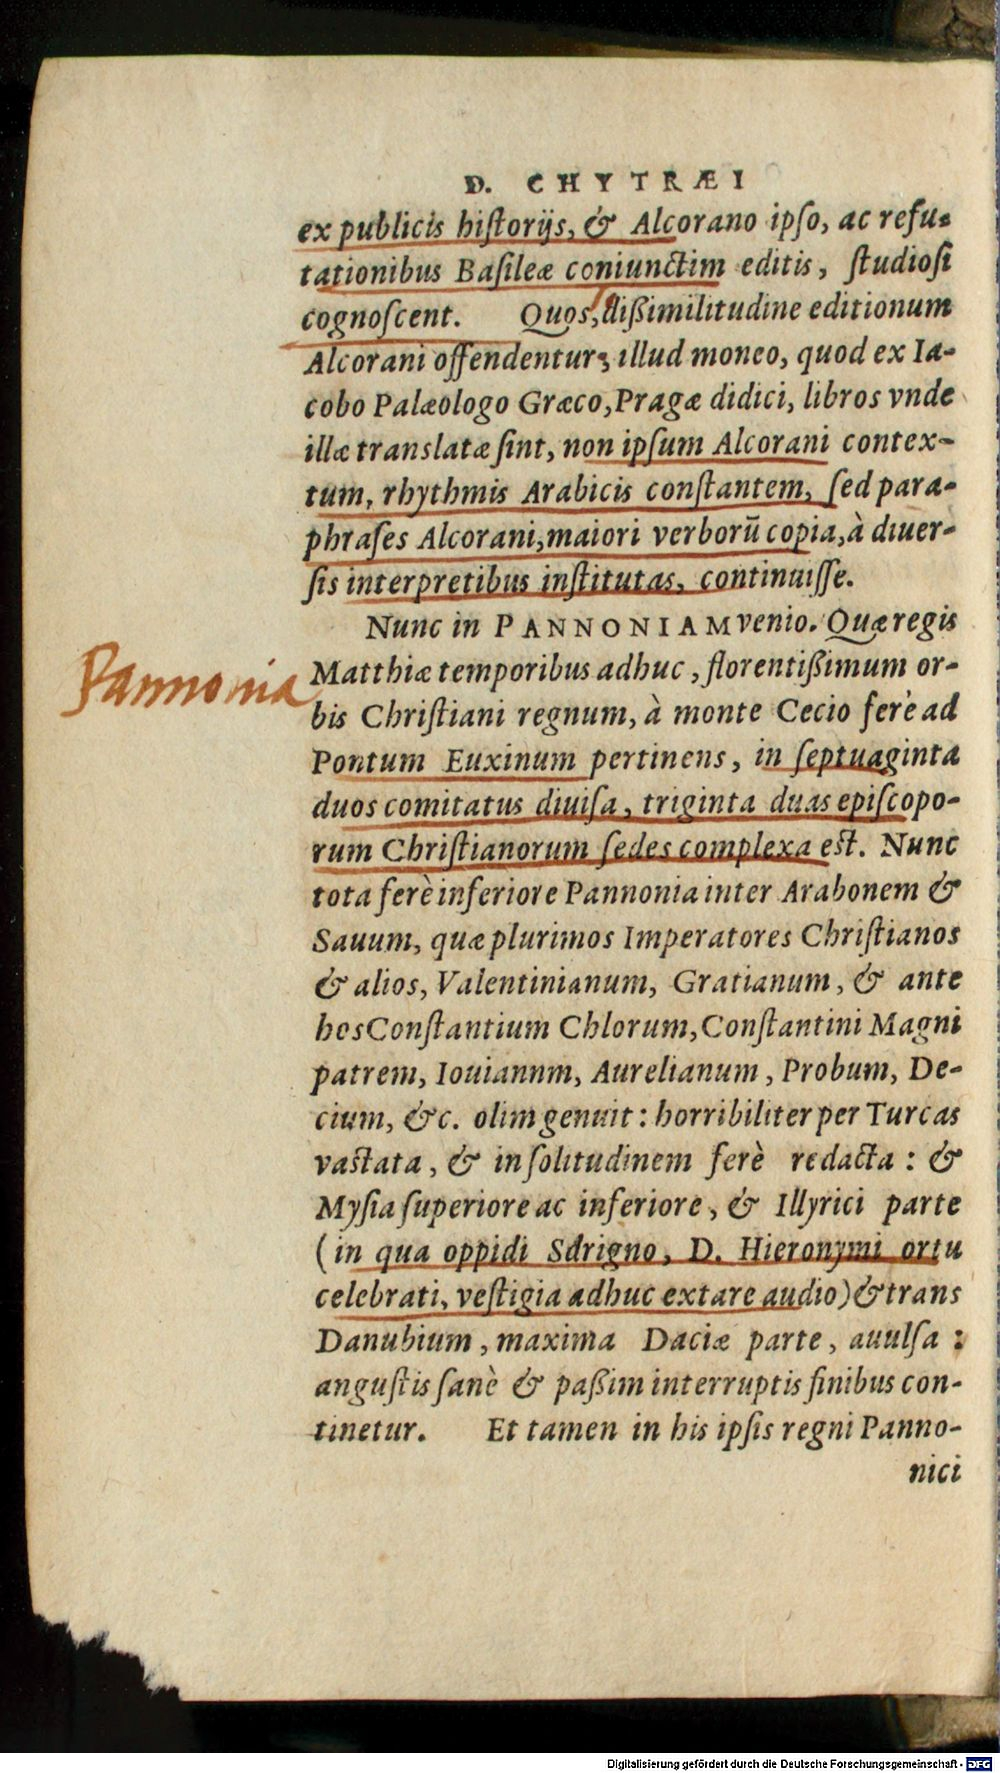 D. CHYTRÆI
ex publicis historijs, & Alcorano ipso, ac refu-
tationibus Basileæ coniunctim editis, studiosi
cognoscent. Quos, dißimilitudine editionum
Alcorani offendentur, illud moneo, quod ex Ia-
cobo Palæologo Græco, Pragæ didici, libros vnde
illæ translatæ sint, non ipsum Alcorani contex-
tum, rhythmis Arabicis constantem, sed para-
phrases Alcorani, maiori verborū copia, à diuer-
sis interpretibus institutas, continuisse.
Nunc in PANNONIAM venio. Quæ regis
Pannonia
Matthiæ temporibus adhuc, florentißimum or-
bis Christiani regnum, à monte Cecio ferè ad
Pontum Euxinum pertinens, in septuaginta
duos comitatus diuisa, triginta duas episcopo-
rum Christianorum sedes complexa est. Nunc
tota ferè inferiore Pannonia inter Arabonem &
Sauum, quæ plurimos Imperatores Christianos
& alios, Valentinianum, Gratianum, & ante
hos Constantium Chlorum, Constantini Magni
patrem, Iouiannm, Aurelianum, Probum, De-
cium, &c. olim genuit: horribiliter per Turcas
vastata, & in solitudinem ferè redacta: &
Mysia superiore ac inferiore, & Illyrici parte
(in qua oppidi Sdrigno, D. Hieronymi ortu
celebrati, vestigia adhuc extare audio) & trans
Danubium, maxima Daciæ parte, auulsa:
angustis sanè & paßim interruptis finibus con-
tinetur. Et tamen in his ipsis regni Panno-
nici
Digitalisierung gefördert durch die Deutsche Forschungsgemeinschaft - DFG